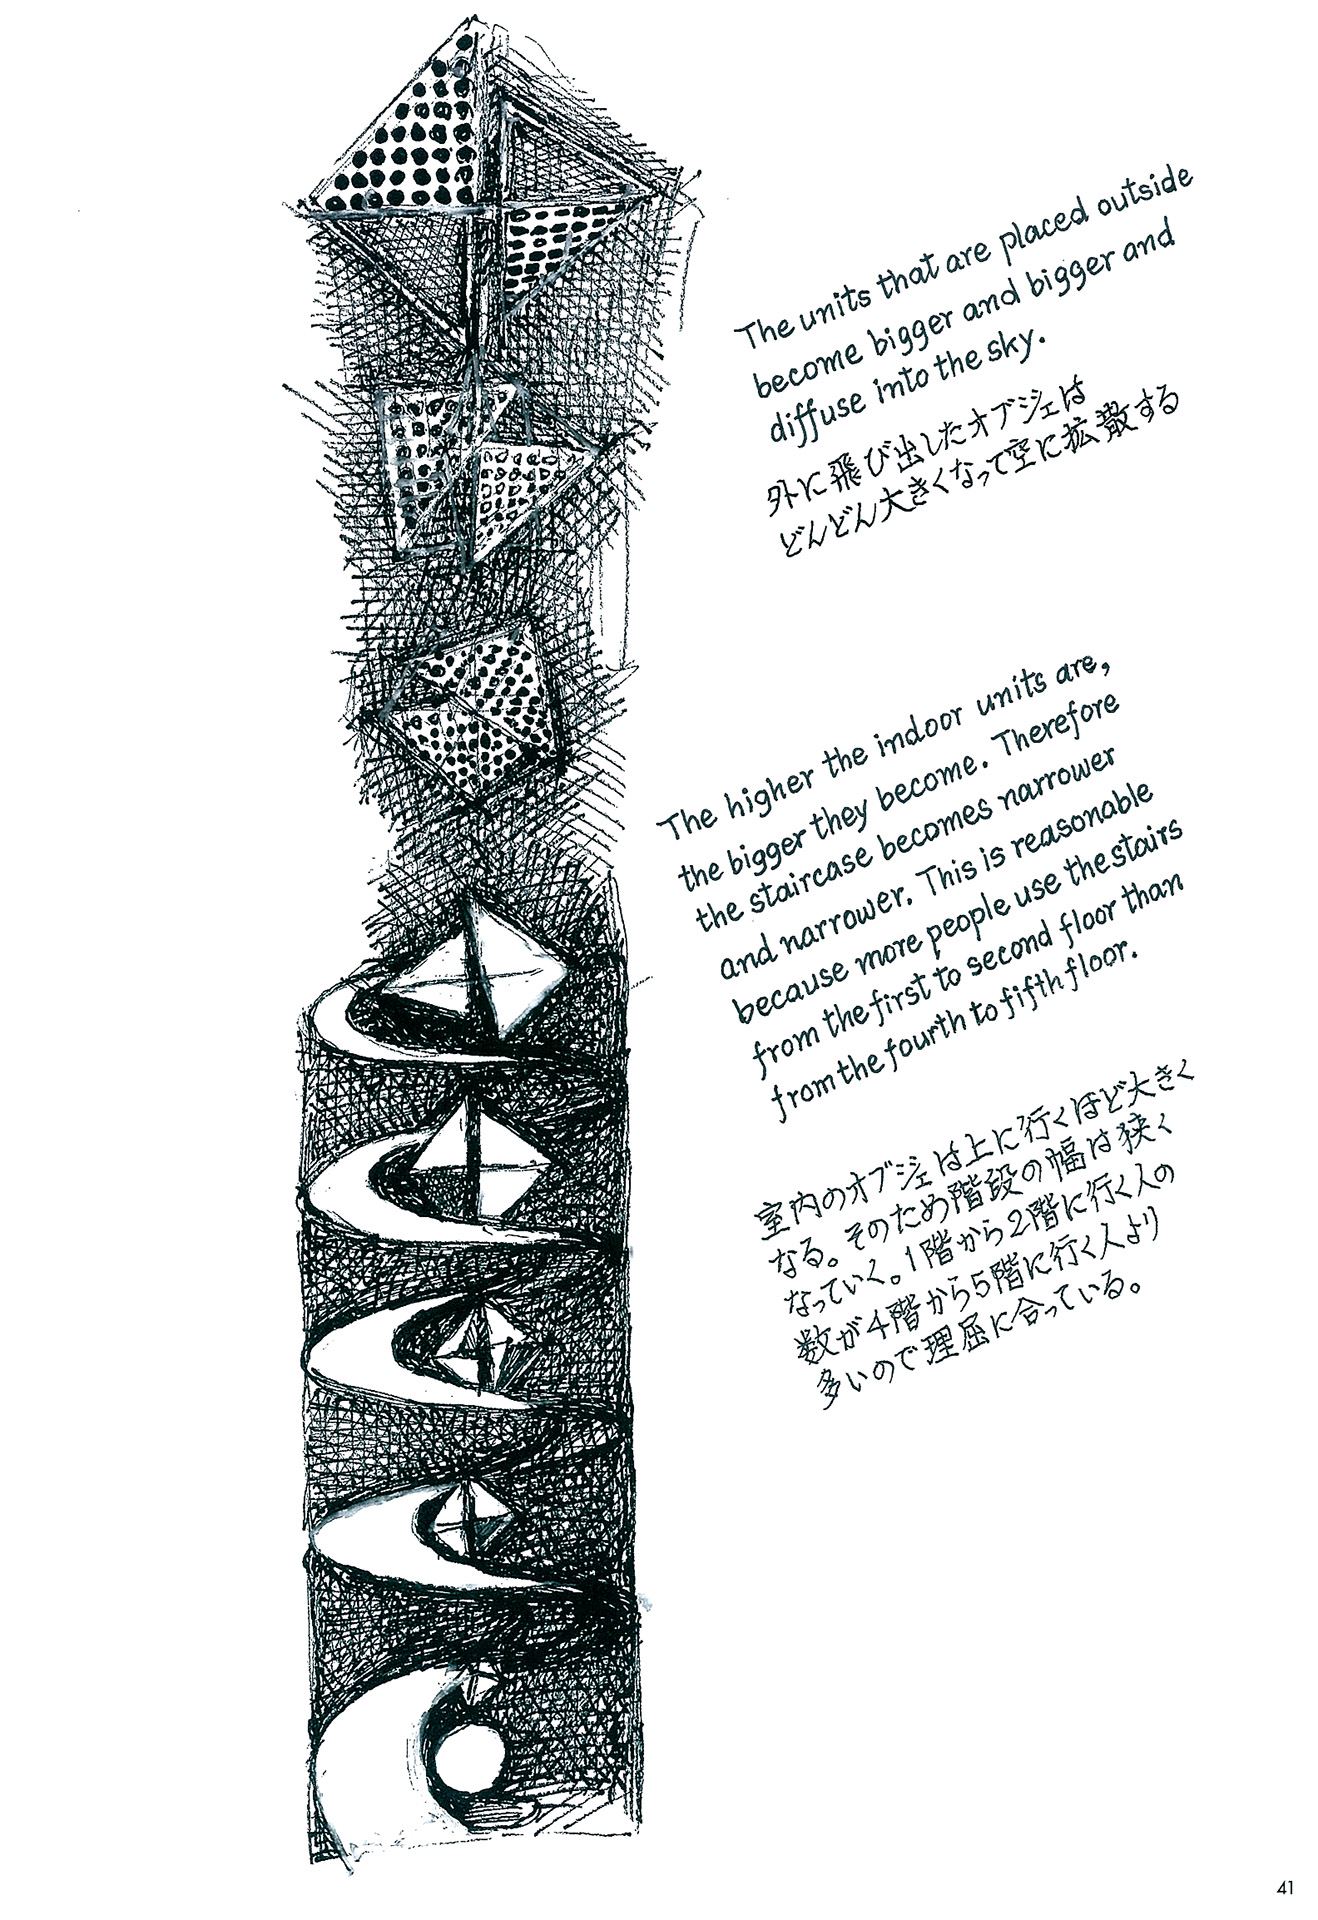 The units that are placed outside
become bigger and bigger and
diffuse into the sky.
外に飛び出したオブジェは
どんどん大きくなって空に拡散する
The higher the indoor units are,
the bigger they become. Therefore
the staircase becomes narrower
and narrower. This is reasonable
because more people use the stairs
from the first to second floor than
from the fourth to fifth floor.
室内のオブジェは上に行くほど大きく
なる。そのため階段の幅は狭く
なっていく。1階から2階に行く人の
数が4階から5階に行く人より
多いので理屈に合っている。
41